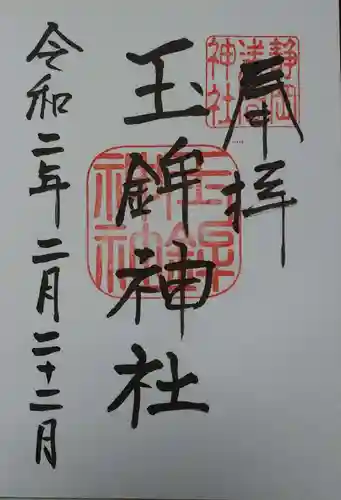 奉拝
静岡
浅間
神社
玉鉾神社
玉鉾
神社
令和二年二月二十二月